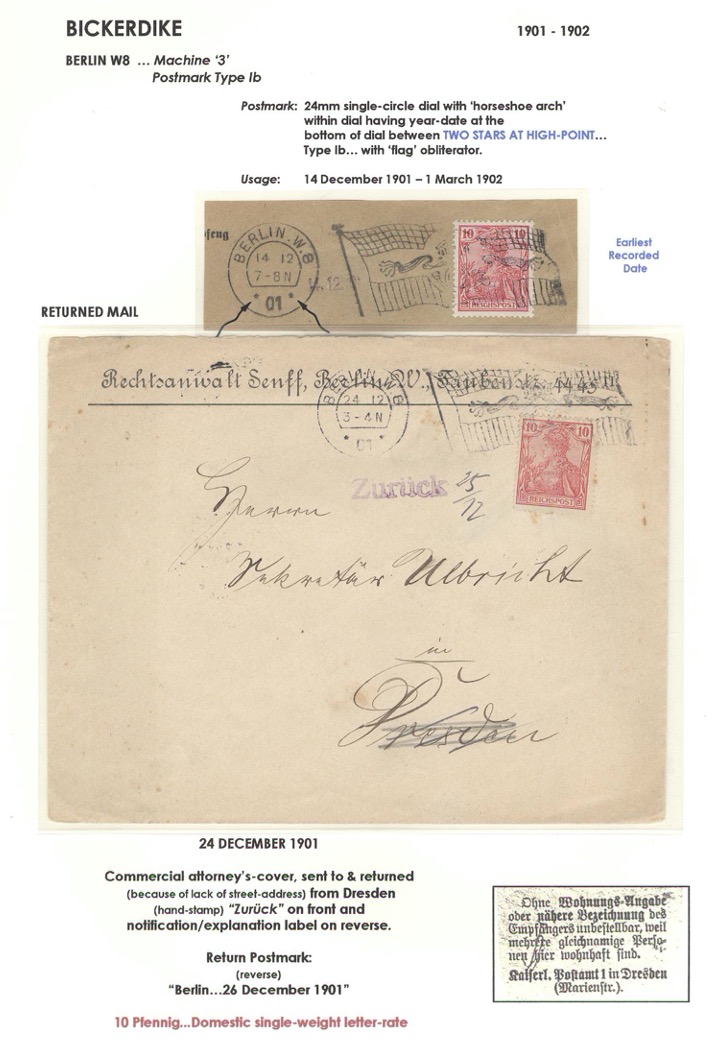 BICKERDIKE 1901 - 1902
BERLIN W8 … Machine ‘3’
Postmark Type Ib
Postmark: 24mm single-circle dial with ‘horseshoe arch’
within dial having year-date at the
bottom of dial between TWO STARS AT HIGH-POINT…
Type Ib… with ‘flag’ obliterator.
Usage: 14 December 1901 – 1 March 1902
BERLIN.W.8
14 12
7-8N
* 01 *
10 10
REICHSPOST
Earliest
Recorded
Date
RETURNED MAIL
Rechtsanwalt Senff, Berlin W., Taubenstr. 44 45
BERLIN.W.8
24 12
3-4N
* 01 *
10 10
REICHSPOST
Zurück 25/12
Herrn
Sekretär Ulbricht
in
Dresden
24 DECEMBER 1901
Commercial attorney’s-cover, sent to & returned
(because of lack of street-address) from Dresden
(hand-stamp) “Zurück” on front and
notification/explanation label on reverse.
Return Postmark:
(reverse)
“Berlin…26 December 1901”
10 Pfennig…Domestic single-weight letter-rate
Ohne Wohnungs-Angabe
oder nähere Bezeichnung des
Empfängers unbestellbar, weil
mehrere gleichnamige Perso-
nen hier wohnhaft sind.
Kaiserl. Postamt 1 in Dresden
(Marienstr.).